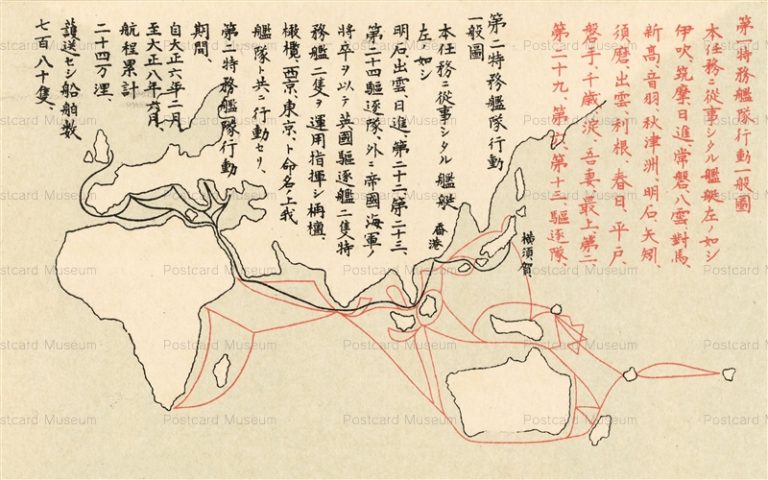 第一特務艦隊行動一般圖
本任務ニ從事シタル艦艇左ノ如シ
伊吹、筑摩、日進、常磐、八雲、對馬、
新高、音羽、秋津洲、明石、矢矧、
須磨、出雲、利根、春日、平戸、
磐手、千歳、淀、吾妻、最上、第二、
第二十九、第六、第十三驅逐隊、
第二特務艦隊行動
一般圖
本任務ニ從事シタル艦艇
左ノ如シ
明石、出雲、日進、第二十二、第二十三、
第二十四驅逐隊、外ニ帝國海軍ノ
將卒ヲ以テ英國驅逐艦二隻特
務艦二隻ヲ運用指揮シ栴檀、
橄欖、西京、東京、ト命名ノ上我
艦隊ト共ニ行動セリ、
第二特務艦隊行動
期間
自大正六年二月
至大正八年六月、
航程累計
二十四万浬、
護送セシ船舶數
七百八十隻、
香港
橫須賀
Postcard Museum